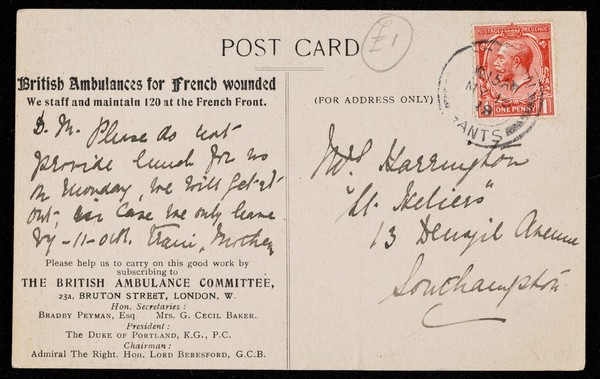 POST CARD
£1
British Ambulances for French wounded
We staff and maintain 120 at the French Front.
D. M. Please do not
provide lunch for us
on Monday, we will get it
out, in case we only leave
by - 11 - o'clk. Train, Mother
Please help us to carry on this good work by
subscribing to
THE BRITISH AMBULANCE COMMITTEE,
23A, BRUTON STREET, LONDON, W.
Hon. Secretaries :
BRADBY PEYMAN, Esq MRS. G. CECIL BAKER.
President :
THE DUKE OF PORTLAND, K.G., P.C.
Chairman :
Admiral The Right. Hon. LORD BERESFORD, G.C.B.
(FOR ADDRESS ONLY)
Mrs Harrington
"St. Heliers"
13 Denzil Avenue
Southampton
POSTAGE REVENUE
ONE PENNY
1
1
ANTS